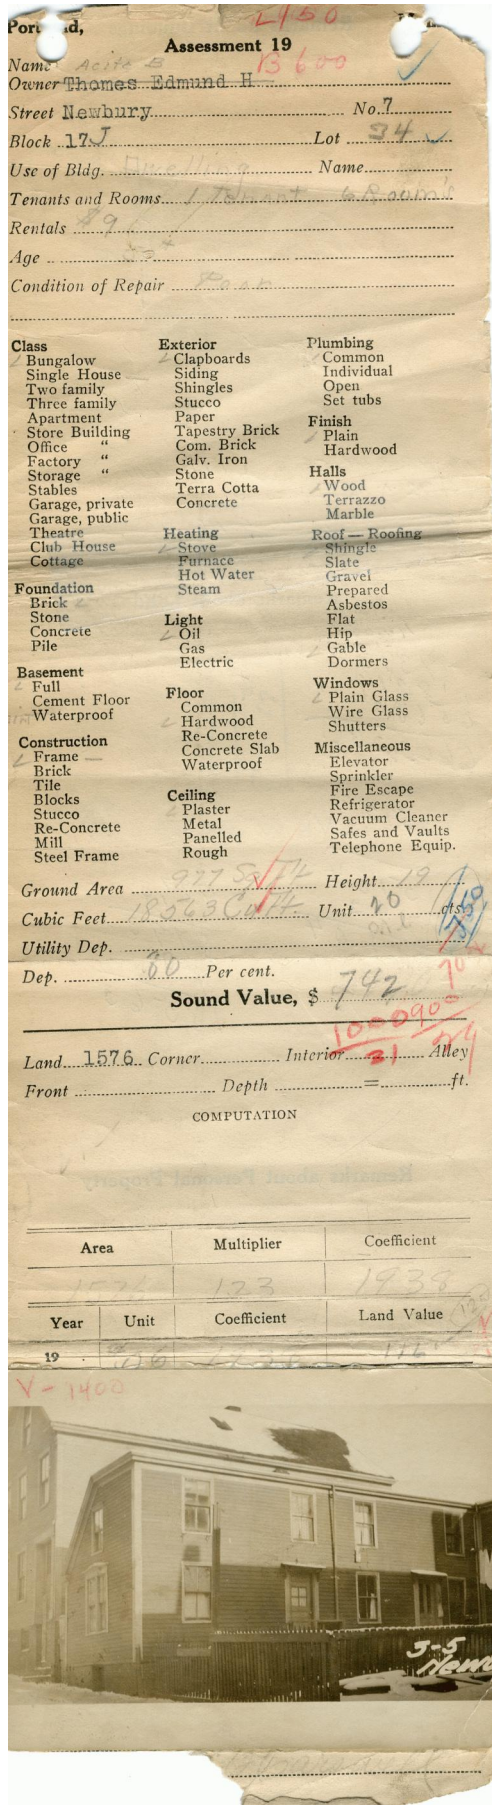 L 150
Assessment 19
B 600
Name
Owner Thomes Edmund H
Street Newbury No. 7
Block 17J Lot 34
Use of Bldg. Dwelling Name
Tenants and Rooms 1 Tenant 6 Rooms
Rentals $9
Age
Condition of Repair Poor
Class
Bungalow
Single House
Two family
Three family
Apartment
Store Building
Office "
Factory "
Storage "
Stables
Garage, private
Garage, public
Theatre
Club House
Cottage
Foundation
Brick
Stone
Concrete
Pile
Basement
Full
Cement Floor
Waterproof
Construction
Frame
Brick
Tile
Blocks
Stucco
Re-Concrete
Mill
Steel Frame
Exterior
Clapboards
Siding
Shingles
Stucco
Paper
Tapestry Brick
Com. Brick
Galv. Iron
Stone
Terra Cotta
Concrete
Heating
Stove
Furnace
Hot Water
Steam
Light
Oil
Gas
Electric
Floor
Common
Hardwood
Re-Concrete
Concrete Slab
Waterproof
Ceiling
Plaster
Metal
Panelled
Rough
Plumbing
Common
Individual
Open
Set tubs
Finish
Plain
Hardwood
Halls
Wood
Terrazzo
Marble
Roof — Roofing
Shingle
Slate
Gravel
Prepared
Asbestos
Flat
Hip
Gable
Dormers
Windows
Plain Glass
Wire Glass
Shutters
Miscellaneous
Elevator
Sprinkler
Fire Escape
Refrigerator
Vacuum Cleaner
Safes and Vaults
Telephone Equip.
Ground Area 977 Sq Ft Height 19
Cubic Feet 18563 Cu Ft Unit 20 cts.
750
Utility Dep.
Dep. 80 Per cent.
Sound Value, $ 742
1000 900
31
Land 1576 Corner Interior Alley
Front Depth = ft.
COMPUTATION
Remarks about Personal Property
Area Multiplier Coefficient
1576 123 1938
Year Unit Coefficient Land Value
19
V - 1400
3-5